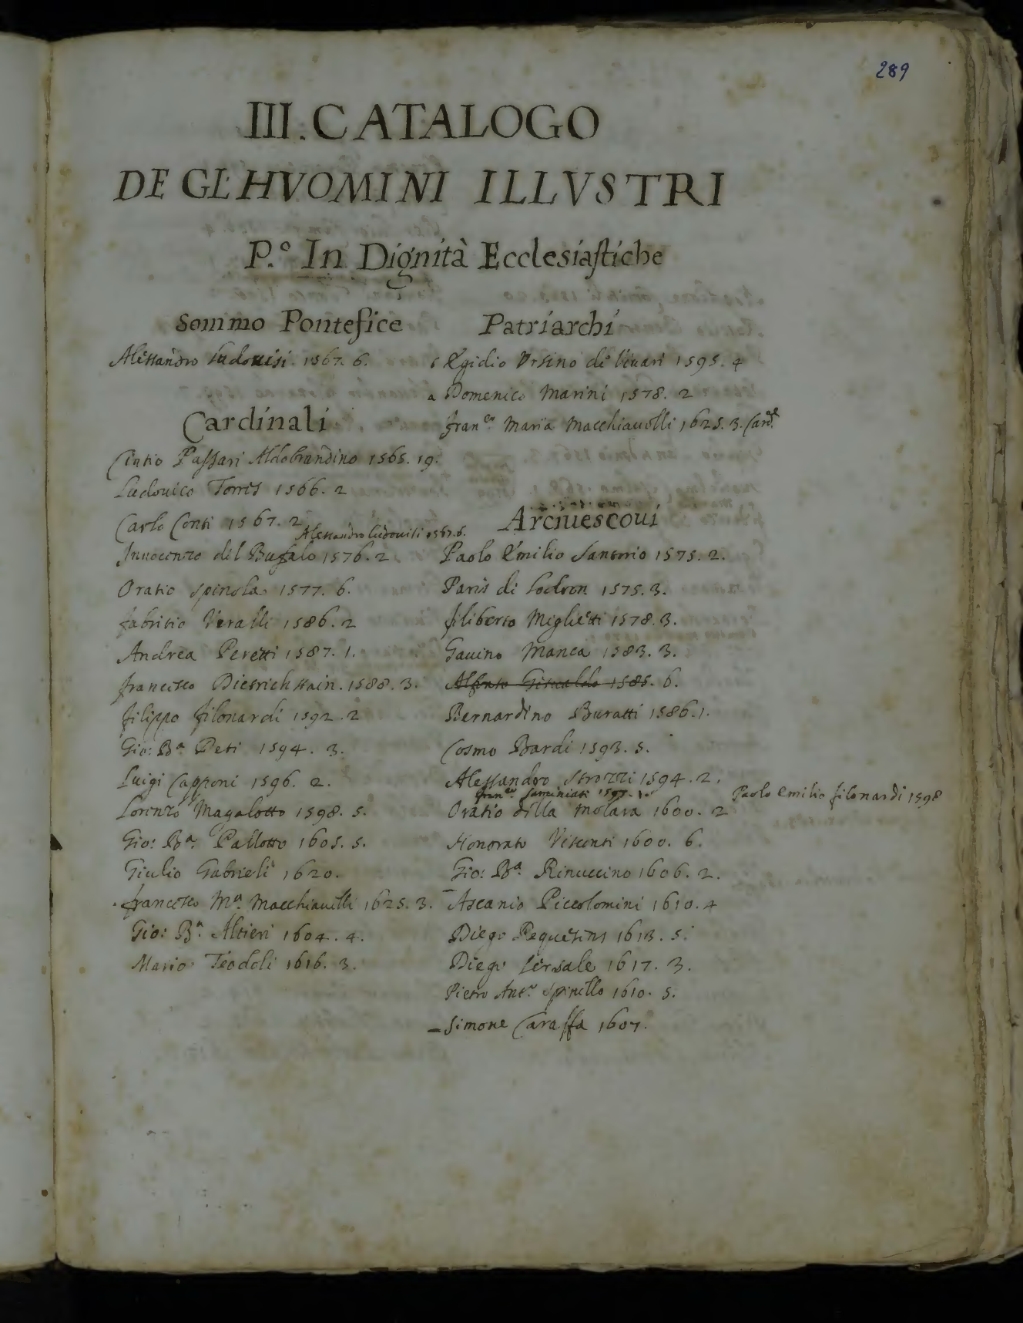 289
III. CATALOGO
DE GL'HVOMINI ILLVSTRI
P.º In Dignità Ecclesiastiche
Sommo Pontefice
Alessandro Ludouisi. 1567. 6.
Cardinali
Cintio Passari Aldobrandino 1565. 19.
Ludouico Torres 1566. 2
Carlo Conti 1567. 2
Alessandro Ludouisi 1567. 6.
Innocenzo del Bufalo 1576. 2
Oratio Spinola 1577. 6.
fabritio Veralli 1586. 2
Andrea Peretti 1587. 1.
francesco Dietrichstain. 1588. 3.
filippo filonardi 1592. 2
Gio: Bª Deti 1594. 3.
Luigi Capponi 1596. 2.
Lorenzo Magalotto 1598. 5.
Gio: Bª. Pallotto 1605. 5.
Giulio Gabrieli 1620.
francesco Mª. Macchiauelli 1625. 3.
Gio: Bª. Altieri 1604. 4.
Mario Teodoli 1616. 3.
Patriarchi
Egidio Vrsino de Viuari 1595. 4
a Domenico Marini 1578. 2
franco Maria Macchiauelli 1625. 3. Card.
Arciuescoui
Paolo Emilio Santorio 1575. 2.
Paris di Lodron 1575. 3.
filiberto Miglietti 1578. 3.
Gauino Manca 1583. 3.
Alfonso Gisualdo 1585. 6.
Bernardino Buratti 1586. 1.
Cosmo Bardi 1593. 5.
Alessandro Strozzi 1594. 2.
1597.
Paolo Emilio filonardi 1598
Oratio della Molara 1600. 2
Honorato Visconti 1600. 6.
Gio: Bª. Rinuccino 1606. 2.
Ascanio Piccolomini 1610. 4
Diego 1613. 5.
Diego Sersale 1617. 3.
Pietro Anto. Spinello 1610. 5.
Simone Caraffa 1607.